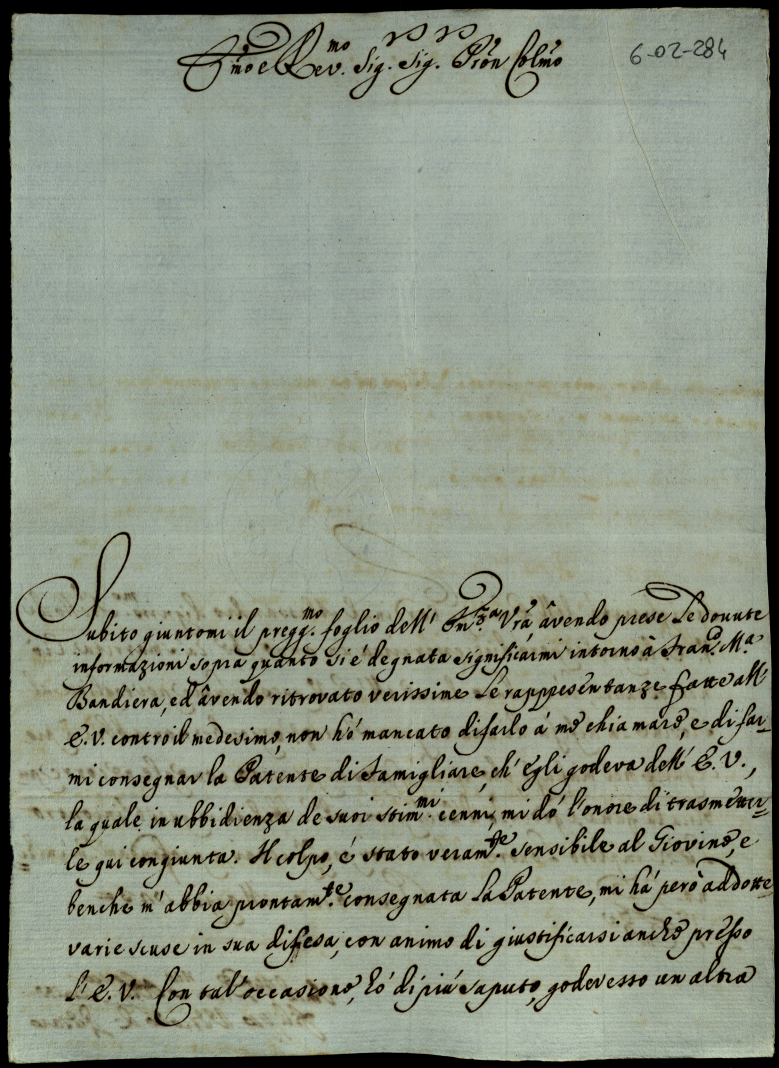 Emo e Revmo Sig. Sig. Pron Colmo
6-02-284
Subito giuntomi il pregg.mo foglio dell' Em.za Vra âvendo prese Le dovute
informazioni sopra quanto si é degnata significarmi intorno â Fran.co M.a
Bandiera, ed âvendo ritrovato verissime Le rappresentanze fatte all'
E. V. contro il medesimo, non hó mancato di farlo á me chiamare, e di far-
mi consegnar la Patente di Famigliare, ch' egli godeva dell' E. V.,
la quale in ubbidienza de suoi stim.mi cenni, mi dó l'onore di trasmetter-
le qui congiunta. Il colpo, é stato veram.te sensibile al Giovine, e
benche m' abbia prontam.te consegnata La Patente, mi há però addotte
varie scuse in sua difesa, con animo di giustificarsi anche presso
L' E. V. Con tal' occasione, hó di piú saputo, godere esso un altra